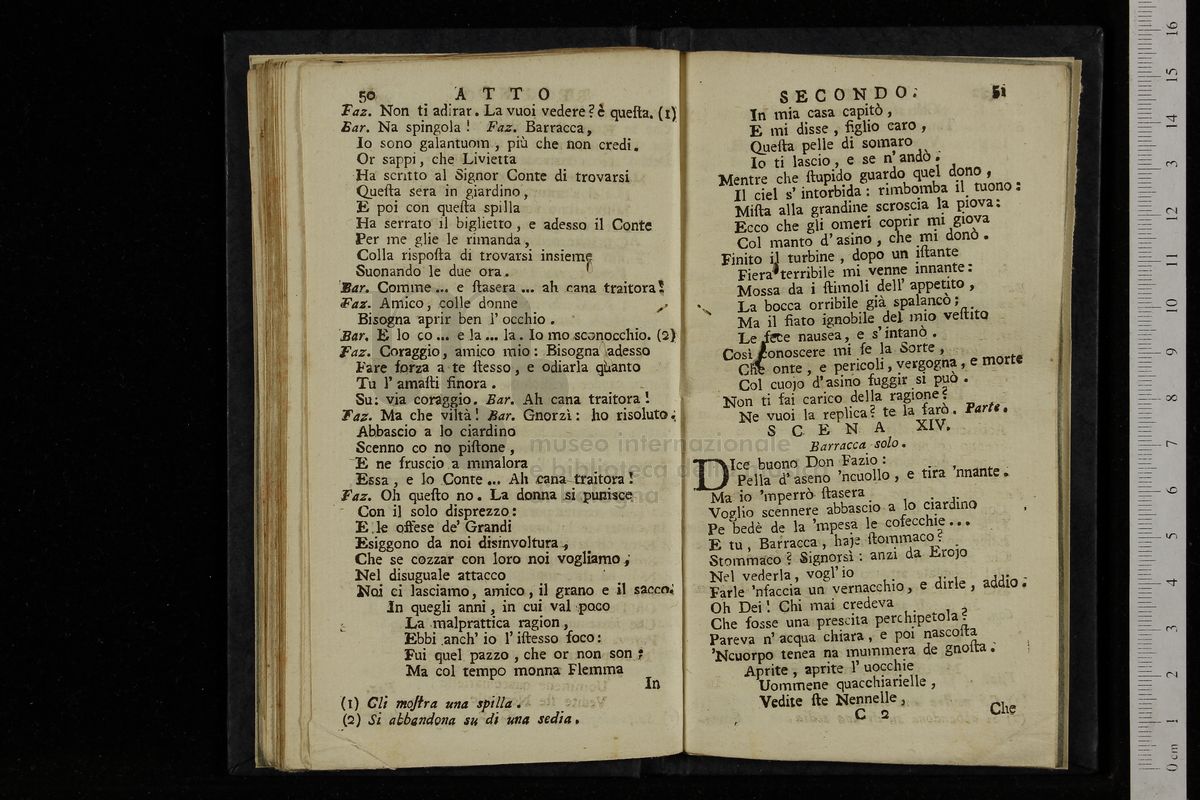 50 ATTO
Faz. Non ti adirar. La vuoi vedere? è queſta. (1)
Bar. Na spingola! Faz. Barracca,
Io sono galantuom, più che non credi.
Or sappi, che Livietta
Ha scritto al Signor Conte di trovarsi
Queſta sera in giardino,
E poi con queſta spilla
Ha serrato il biglietto, e adesso il Conte
Per me glie le rimanda,
Colla rispoſta di trovarsi insieme
Suonando le due ora.
Bar. Comme... e ſtasera... ah cana traitora!
Faz. Amico, colle donne
Bisogna aprir ben l'occhio.
Bar. E lo co... e la... la. Io mo sconocchio. (2)
Faz. Coraggio, amico mio: Bisogna adesso
Fare forza a te ſtesso, e odiarla quanto
Tu l'amaſti finora.
Su: via coraggio. Bar. Ah cana traitora!
Faz. Ma che viltà! Bar. Gnorzì: ho risoluto:
Abbascio a lo ciardino
Scenno co no piſtone,
E ne fruscio a mmalora
Essa, e lo Conte... Ah cana traitora!
Faz. Oh queſto no. La donna si punisce
Con il solo disprezzo:
E le offese de' Grandi
Esiggono da noi disinvoltura,
Che se cozzar con loro noi vogliamo,
Nel disuguale attacco
Noi ci lasciamo, amico, il grano e il sacco.
In quegli anni, in cui val poco
La malprattica ragion,
Ebbi anch' io l'iſtesso foco:
Fui quel pazzo, che or non son:
Ma col tempo monna Flemma
In
(1) Gli moſtra una spilla.
(2) Si abbandona su di una sedia.
SECONDO. 51
In mia casa capitò,
E mi disse, figlio caro,
Queſta pelle di somaro
Io ti lascio, e se n'andò.
Mentre che ſtupido guardo quel dono,
Il ciel s'intorbida: rimbomba il tuono:
Miſta alla grandine scroscia la piova:
Ecco che gli omeri coprir mi giova
Col manto d'asino, che mi donò.
Finito il turbine, dopo un iſtante
Fiera terribile mi venne innante:
Mossa da i ſtimoli dell' appetito,
La bocca orribile già spalancò;
Ma il fiato ignobile del mio veſtito
Le fece nausea, e s'intanò.
Così conoscere mi fe la Sorte,
Che onte, e pericoli, vergogna, e morte
Col cuojo d'asino fuggir si può.
Non ti fai carico della ragione?
Ne vuoi la replica? te la farò. Parte.
SCENA XIV.
Barracca solo.
DIce buono Don Fazio:
Pella d'aseno 'ncuollo, e tira 'nnante.
Ma io 'mperrò ſtasera
Voglio scennere abbascio a lo ciardino
Pe bedè de la 'mpesa le cofecchie...
E tu, Barracca, haje ſtommaco?
Stommaco? Signorsì: anzi da Erojo
Nel vederla, vogl'io
Farle 'nfaccia un vernacchio, e dirle, addio.
Oh Dei! Chi mai credeva
Che fosse una prescita perchipetola?
Pareva n'acqua chiara, e poi nascoſta
'Ncuorpo tenea na mummera de gnoſta.
Aprite, aprite l'uocchie
Uommene quacchiarielle,
Vedite ſte Nennelle,
C 2 Che
museo internazionale
e biblioteca della musica
di bologna
0 cm 1 2 3 4 5 6 7 8 9 10 11 12 13 14 15 16